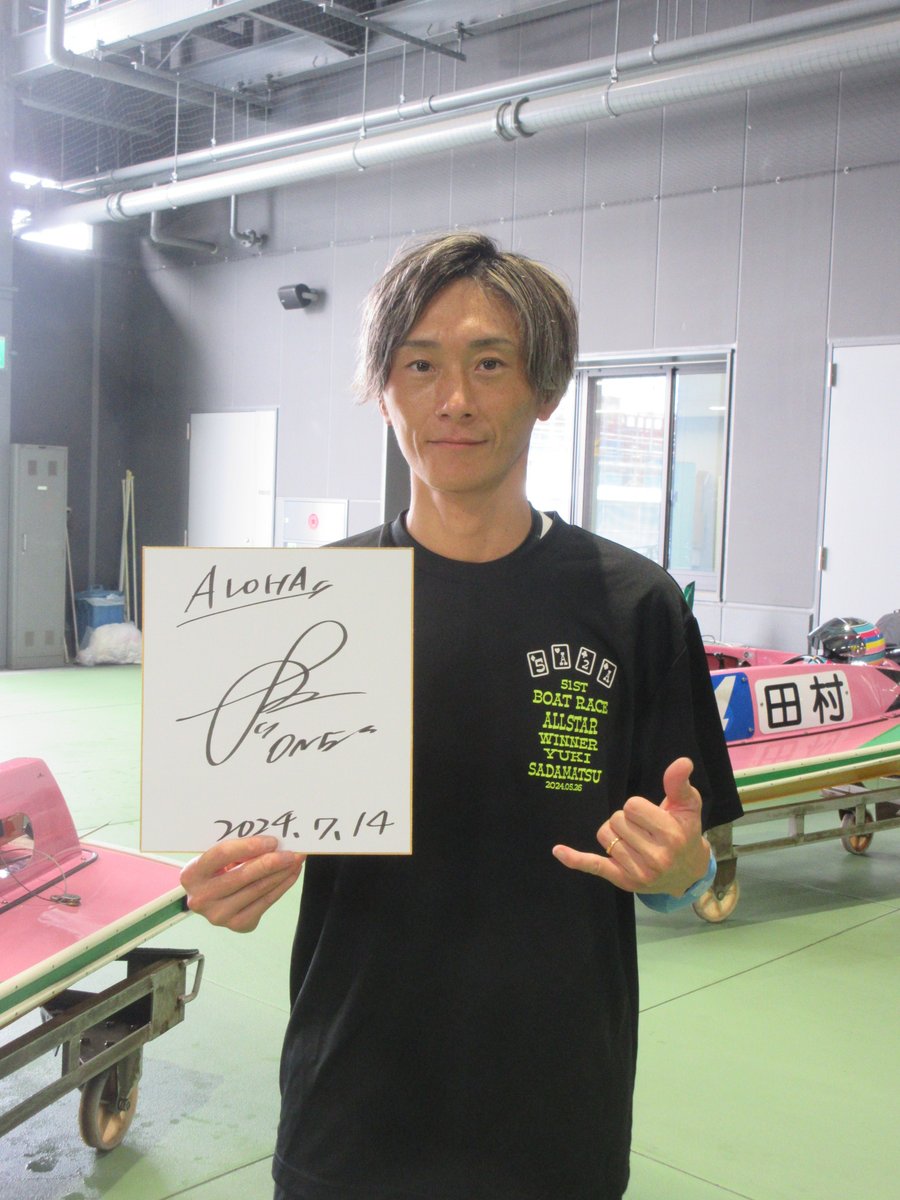 ALOHA
"ONE"
2024.7.14
5 A 2 A
51ST
BOAT RACE
ALLSTAR
WINNER
YUKI
SADAMATSU
2024.05.26
田村